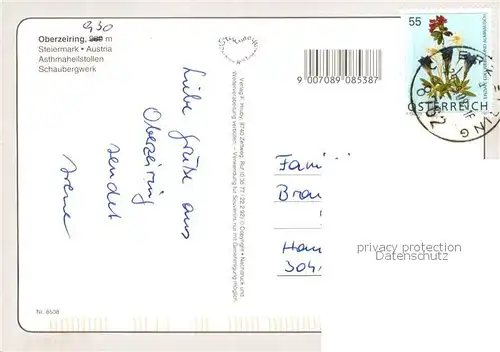 930
Oberzeiring, 900 m
Steiermark • Austria
Asthmaheilstollen
Schaubergwerk
Liebe Grüße aus
Oberzeiring
sendet
Irene
Nr. 8538
9 007089 085387
Verlag F. Hruby, 8740 Zeltweg, Ruf (0 35 77 / 22 2 92) © Copyright • Nachdruck und
Weiterverarbeitung verboten – Verwendung für Souvenirs nur mit Genehmigung möglich.
55
ÖSTERREICH
Fami
Brau
Han
304
privacy protection
Datenschutz